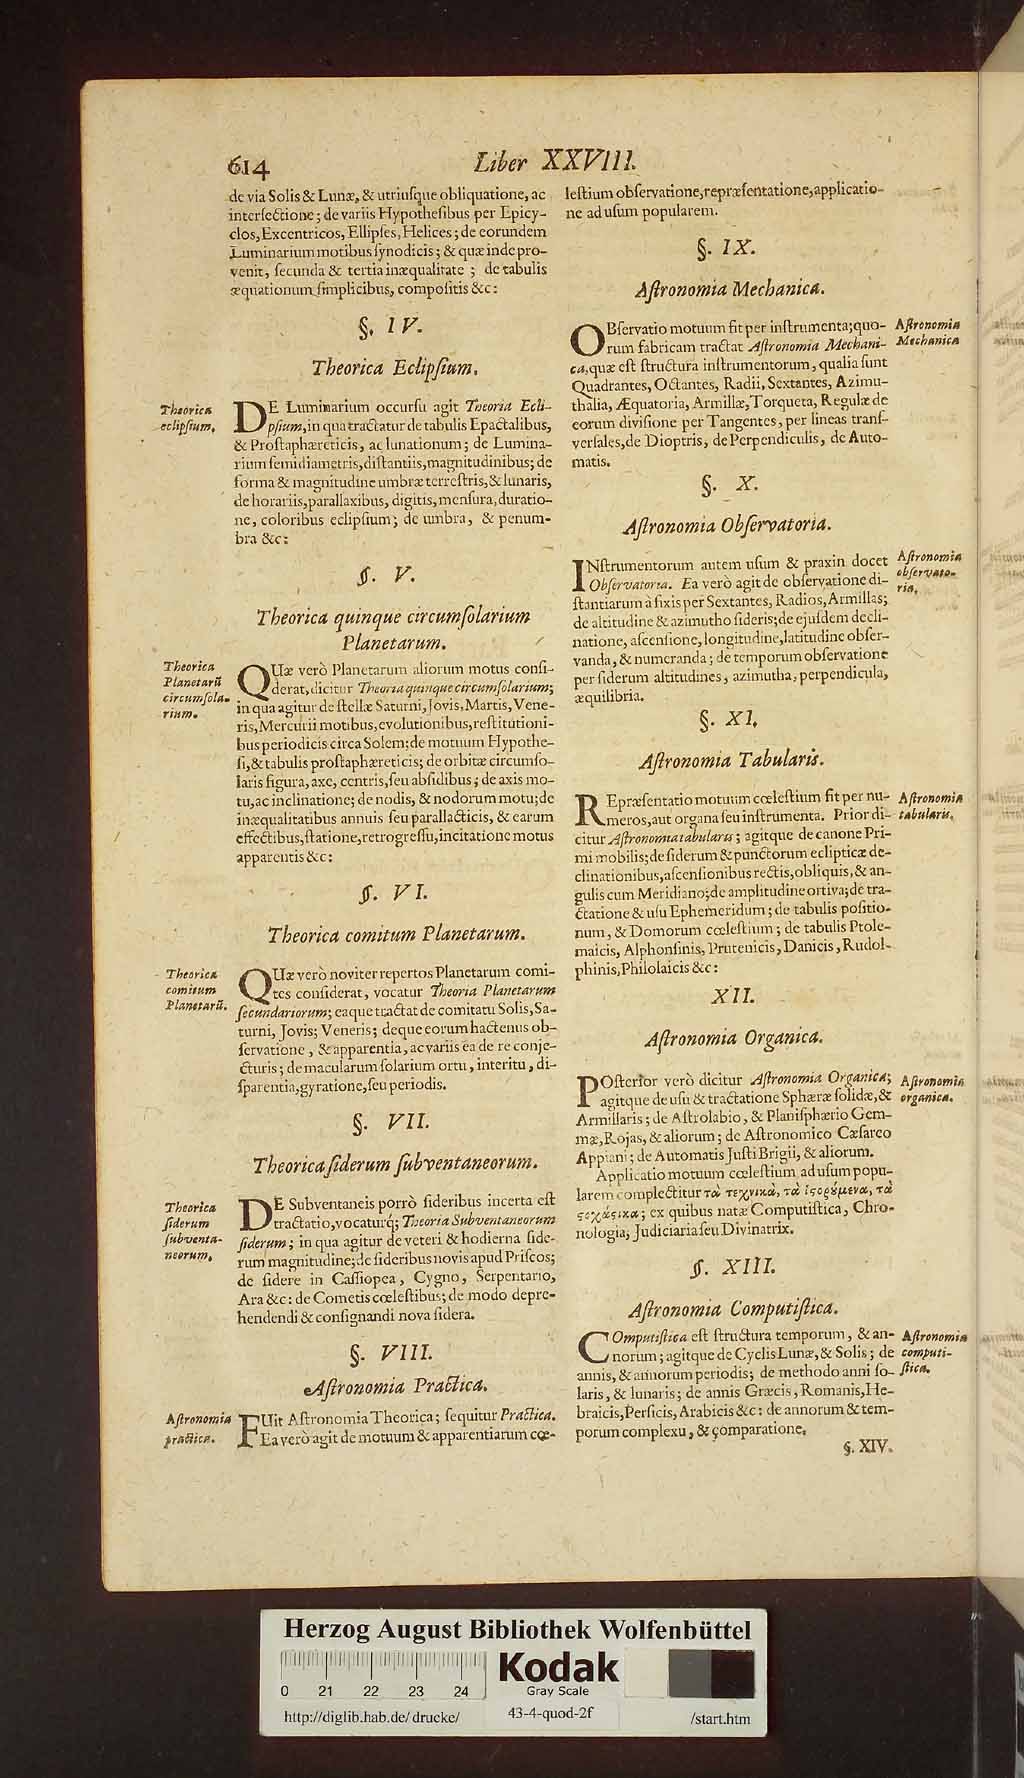 614
Liber XXVIII.
de via Solis & Lunæ, & utriuſque obliquatione, ac
interſectione; de variis Hypotheſibus per Epicy-
clos, Excentricos, Ellipſes, Helices; de eorundem
Luminarium motibus ſynodicis; & quæ inde pro-
venit, ſecunda & tertia inæqualitate; de tabulis
æquationum ſimplicibus, compoſitis &c:
§. IV.
Theorica Eclipſium.
Theorica
eclipſium.
DE Luminarium occurſu agit Theoria Ecli-
pſium, in qua tractatur de tabulis Epactalibus,
& Proſtaphæreticis, ac lunationum; de Lumina-
rium ſemidiametris, diſtantiis, magnitudinibus; de
forma & magnitudine umbræ terreſtris, & lunaris,
de horariis, parallaxibus, digitis, menſura, duratio-
ne, coloribus eclipſium; de umbra, & penum-
bra &c:
§. V.
Theorica quinque circumſolarium
Planetarum.
Theorica
Planetarū
circumſola-
rium.
QUæ verò Planetarum aliorum motus conſi-
derat, dicitur Theoria quinque circumſolarium;
in qua agitur de ſtellæ Saturni, Jovis, Martis, Vene-
ris, Mercurii motibus, evolutionibus, reſtitutioni-
bus periodicis circa Solem; de motuum Hypothe-
ſi, & tabulis proſtaphæreticis; de orbitæ circumſo-
laris figura, axe, centris, ſeu abſidibus; de axis mo-
tu, ac inclinatione; de nodis, & nodorum motu; de
inæqualitatibus annuis ſeu parallacticis, & earum
effectibus, ſtatione, retrogreſſu, incitatione motus
apparentis &c:
§. VI.
Theorica comitum Planetarum.
Theorica
comitum
Planetarū.
QUæ verò noviter repertos Planetarum comi-
tes conſiderat, vocatur Theoria Planetarum
ſecundariorum; eaque tractat de comitatu Solis, Sa-
turni, Jovis; Veneris; deque eorum hactenus ob-
ſervatione, & apparentia, ac variis ea de re conje-
cturis; de macularum ſolarium ortu, interitu, di-
ſparentia, gyratione, ſeu periodis.
§. VII.
Theorica ſiderum ſubventaneorum.
Theorica
ſiderum
ſubventa-
neorum.
DE Subventaneis porrò ſideribus incerta eſt
tractatio, vocaturq́; Theoria Subventaneorum
ſiderum; in qua agitur de veteri & hodierna ſide-
rum magnitudine; de ſideribus novis apud Priſcos;
de ſidere in Caſſiopea, Cygno, Serpentario,
Ara &c: de Cometis cœleſtibus; de modo depre-
hendendi & conſignandi nova ſidera.
§. VIII.
Aſtronomia Practica.
Aſtronomia
practica.
FUit Aſtronomia Theorica; ſequitur Practica.
Ea verò agit de motuum & apparentiarum cœ-
leſtium obſervatione, repræſentatione, applicatio-
ne ad uſum popularem.
§. IX.
Aſtronomia Mechanica.
OBſervatio motuum fit per inſtrumenta; quo-
rum fabricam tractat Aſtronomia Mechani-
ca, quæ eſt ſtructura inſtrumentorum, qualia ſunt
Quadrantes, Octantes, Radii, Sextantes, Azimu-
thalia, Æquatoria, Armillæ, Torqueta, Regulæ de
eorum diviſione per Tangentes, per lineas tranſ-
verſales, de Dioptris, de Perpendiculis, de Auto-
matis.
Aſtronomia
Mechanica
§. X.
Aſtronomia Obſervatoria.
INſtrumentorum autem uſum & praxin docet
Obſervatoria. Ea verò agit de obſervatione di-
ſtantiarum à fixis per Sextantes, Radios, Armillas;
de altitudine & azimutho ſideris; de ejuſdem decli-
natione, aſcenſione, longitudine, latitudine obſer-
vanda, & numeranda; de temporum obſervatione
per ſiderum altitudines, azimutha, perpendicula,
æquilibria.
Aſtronomia
obſervato-
ria.
§. XI.
Aſtronomia Tabularis.
REpræſentatio motuum cœleſtium fit per nu-
meros, aut organa ſeu inſtrumenta. Prior di-
citur Aſtronomia tabularis; agitque de canone Pri-
mi mobilis; de ſiderum & punctorum eclipticæ de-
clinationibus, aſcenſionibus rectis, obliquis, & an-
gulis cum Meridiano; de amplitudine ortiva; de tra-
ctatione & uſu Ephemeridum; de tabulis poſitio-
num, & Domorum cœleſtium; de tabulis Ptole-
maicis, Alphonſinis, Prutenicis, Danicis, Rudol-
phinis, Philolaicis &c:
Aſtronomia
tabularis.
XII.
Aſtronomia Organica.
POſterior verò dicitur Aſtronomia Organica;
agitque de uſu & tractatione Sphæræ ſolidæ, &
Armillaris; de Aſtrolabio, & Planiſphærio Gem-
mæ, Rojas, & aliorum; de Aſtronomico Cæſareo
Appiani; de Automatis Juſti Brigii, & aliorum.
Applicatio motuum cœleſtium ad uſum popu-
larem complectitur τὰ τεχνικὰ, τὰ ἱϛορούμενα, τὰ
ϛοχάϛικα; ex quibus natæ Computiſtica, Chro-
nologia, Judiciaria ſeu Divinatrix.
Aſtronomia
organica.
§. XIII.
Aſtronomia Computiſtica.
COmputiſtica eſt ſtructura temporum, & an-
norum; agitque de Cyclis Lunæ, & Solis; de
annis, & annorum periodis; de methodo anni ſo-
laris, & lunaris; de annis Græcis, Romanis, He-
braicis, Perſicis, Arabicis &c: de annorum & tem-
porum complexu, & comparatione.
Aſtronomia
computi-
ſtica.
§. XIV.
Herzog August Bibliothek Wolfenbüttel
0 21 22 23 24
Kodak
Gray Scale
http://diglib.hab.de/drucke/
43-4-quod-2f
/start.htm